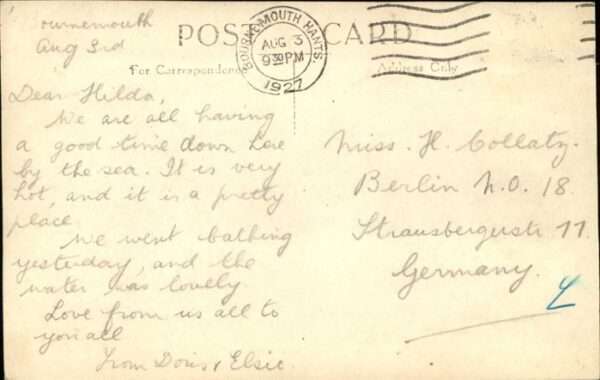 Bournemouth
Aug 3rd
POST CARD
BOURNEMOUTH HANTS.
AUG 3
9 30 PM
1927
For Correspondence
Address Only
Dear Hilda,
We are all having
a good time down here
by the sea. It is very
hot, and it is a pretty
place
We went bathing
yesterday, and the
water was lovely
Love from us all to
you all
From Doris & Elsie.
Miss. H. Collatz.
Berlin N.O. 18.
Strausbergerstr 11.
Germany.